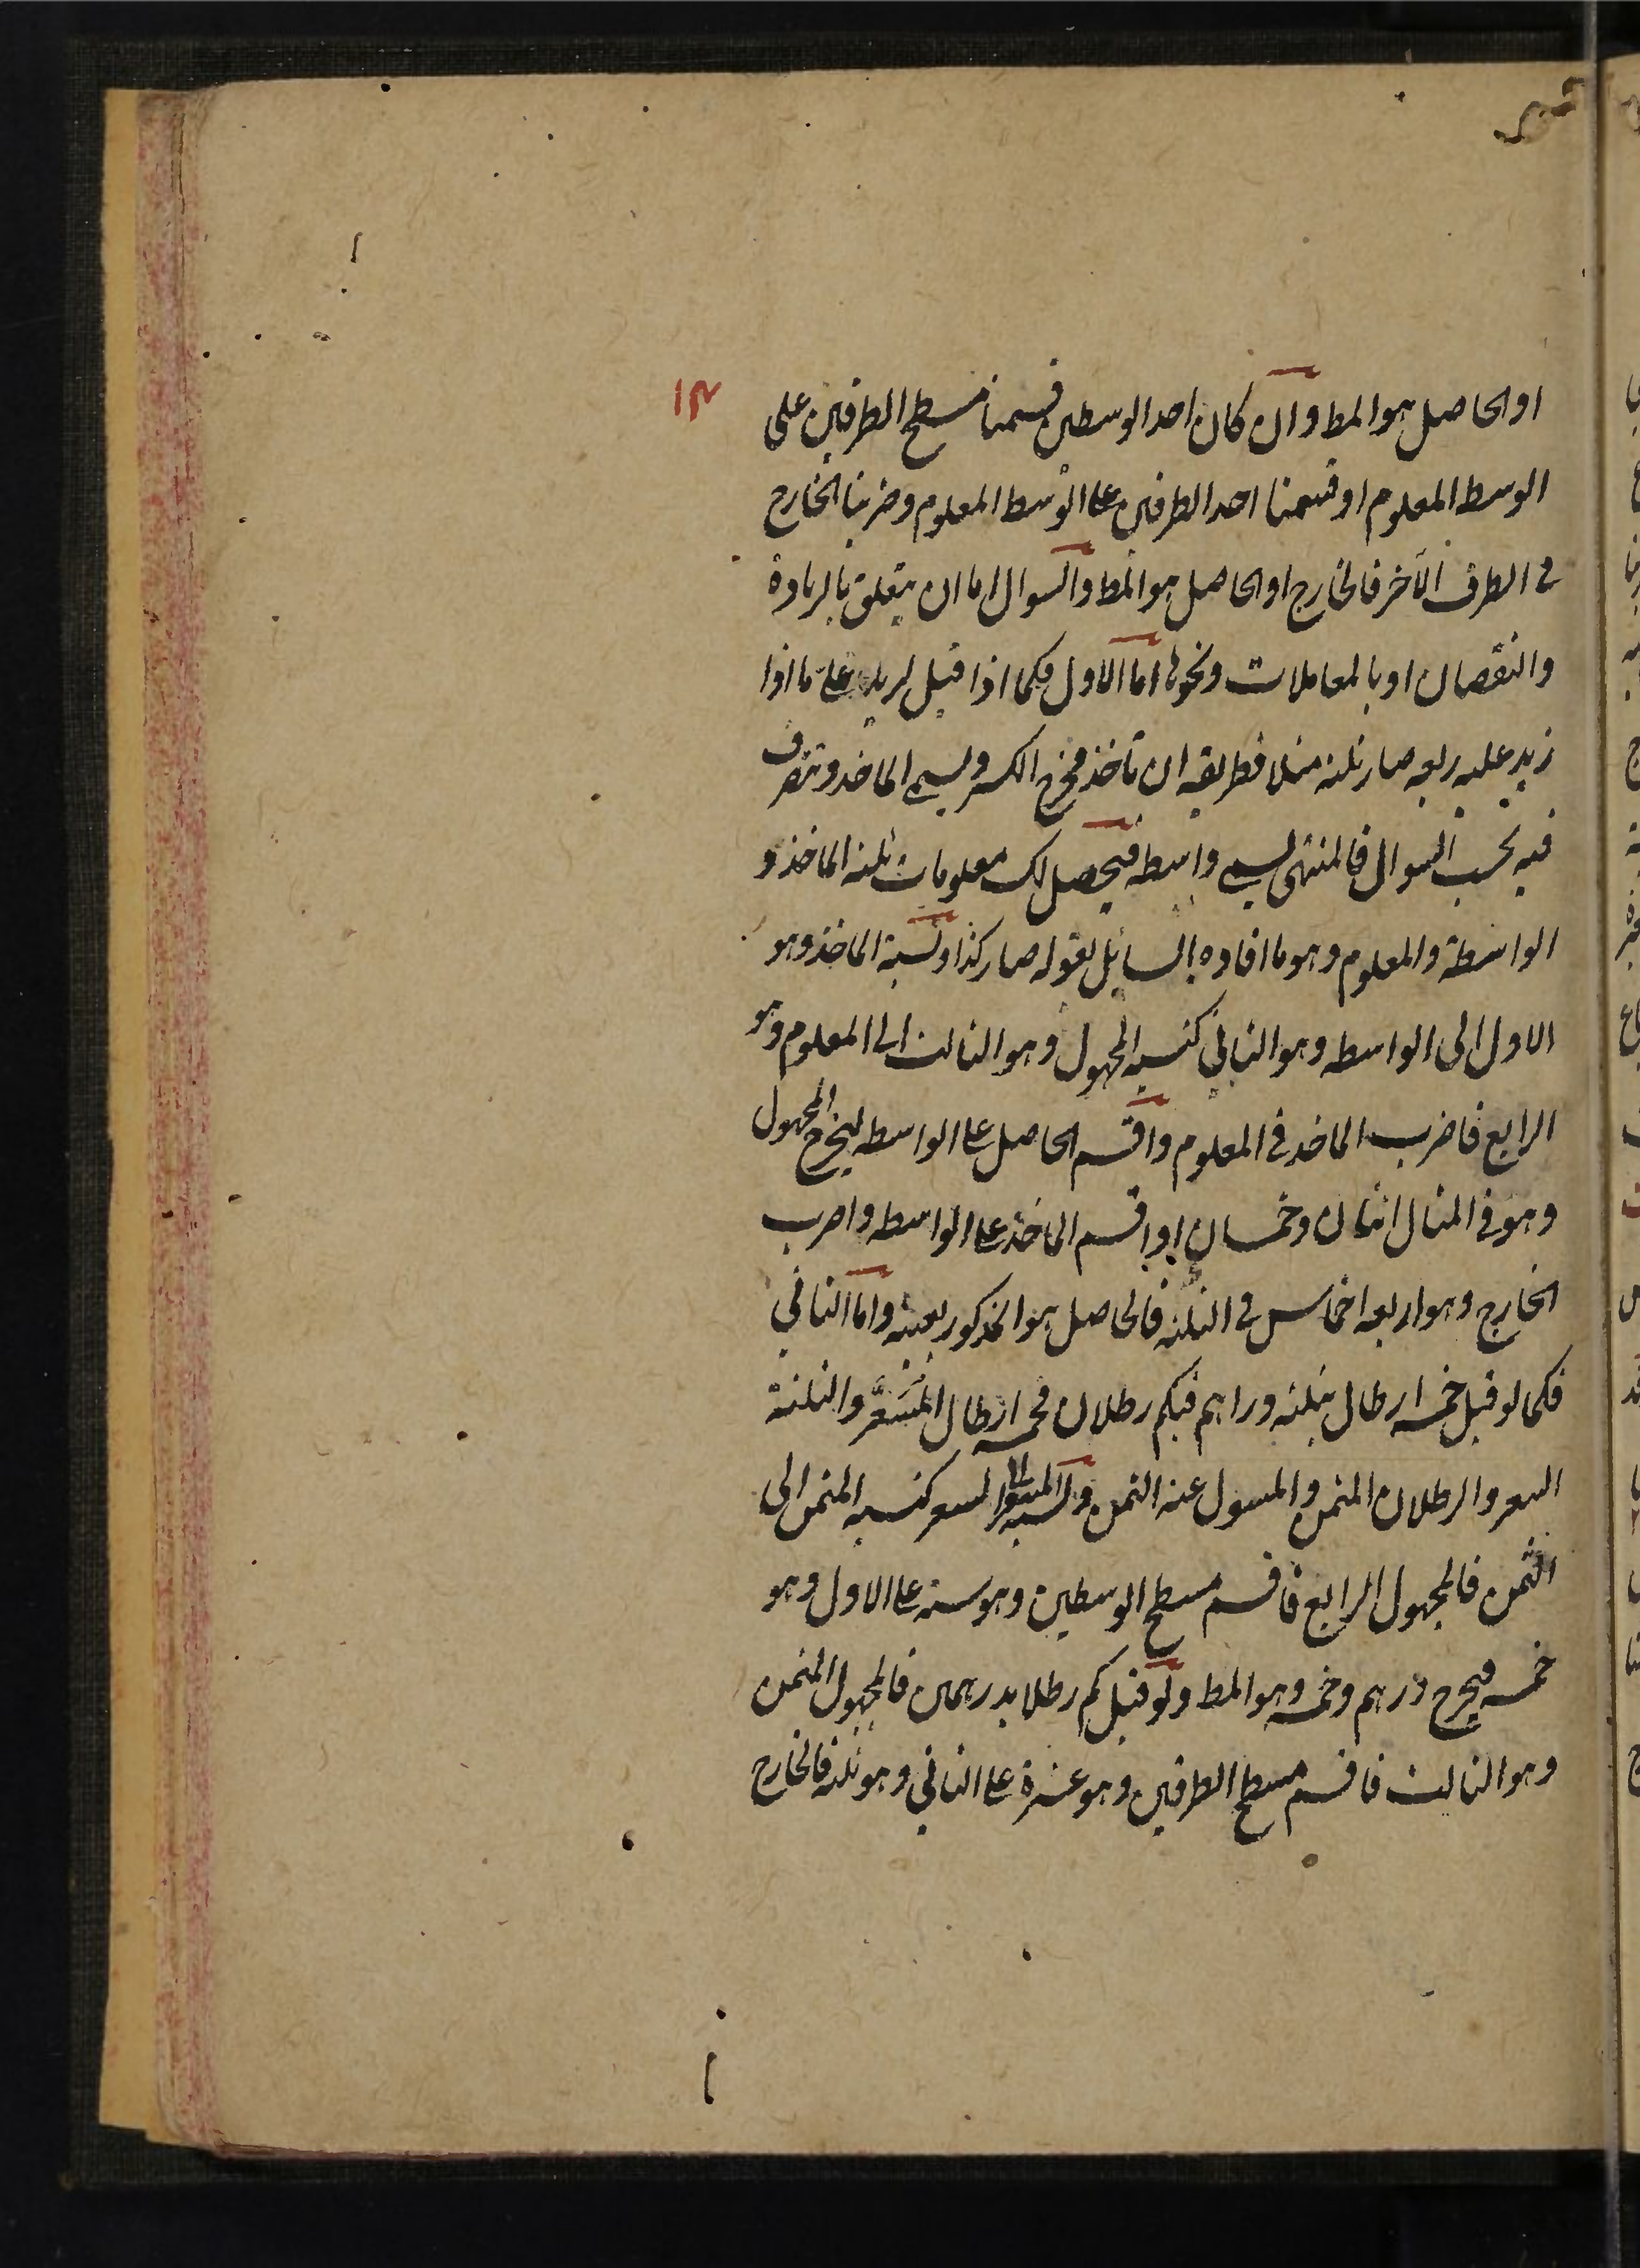 ١٣
او الحاصل هو المط وان كان احد الوسطين قسمنا مسطح الطرفين على
الوسط المعلوم او قسمنا احد الطرفين على الوسط المعلوم وضربنا الخارج
فى الطرف الآخر فالخارج او الحاصل هو المط والسوال اما ان يتعلق بالزيادة
والنقصان او بالمعاملات ونحوها اما الاول فكما اذا قيل لزيد على ما اذا
زيد عليه ربعه صار ثلثه مثلا فطريقه ان تاخذ مخرج الكسر ويسمى الماخذ وتتصرف
فيه بحسب السوال فالمنتهى يسمى واسطه فيحصل لك معلومات ثلثه الماخذ و
الواسطة والمعلوم وهو ما افاده السائل بقوله صار كذا ونسبة الماخذ وهو
الاول الى الواسطه وهو الثانى كنسبه المجهول وهو الثالث الى المعلوم وهو
الرابع فاضرب الماخذ فى المعلوم واقسم الحاصل على الواسطه ليخرج المجهول
وهو فى المثال اثنان وخمسان او اقسم الماخذ على الواسطه واضرب
الخارج وهو اربعه اخماس فى الثلثه فالحاصل هو المذكور بعينه واما الثانى
فكما لو قيل خمسه ارطال بثلثه دراهم فبكم رطلان فخمسه ارطال المُسَعَّر والثلثة
السعر والرطلان المثمن والمسول عنه الثمن ونسبه المسعر الى السعر كنسبه المثمن الى
الثمن فالمجهول الرابع فاقسم مسطح الوسطين وهو سته على الاول وهو
خمسه فيخرج درهم وخمس وهو المط ولو قيل كم رطلا بدرهمين فالمجهول المثمن
وهو الثالث فاقسم مسطح الطرفين وهو عشرة على الثانى وهو ثلثه فالخارج